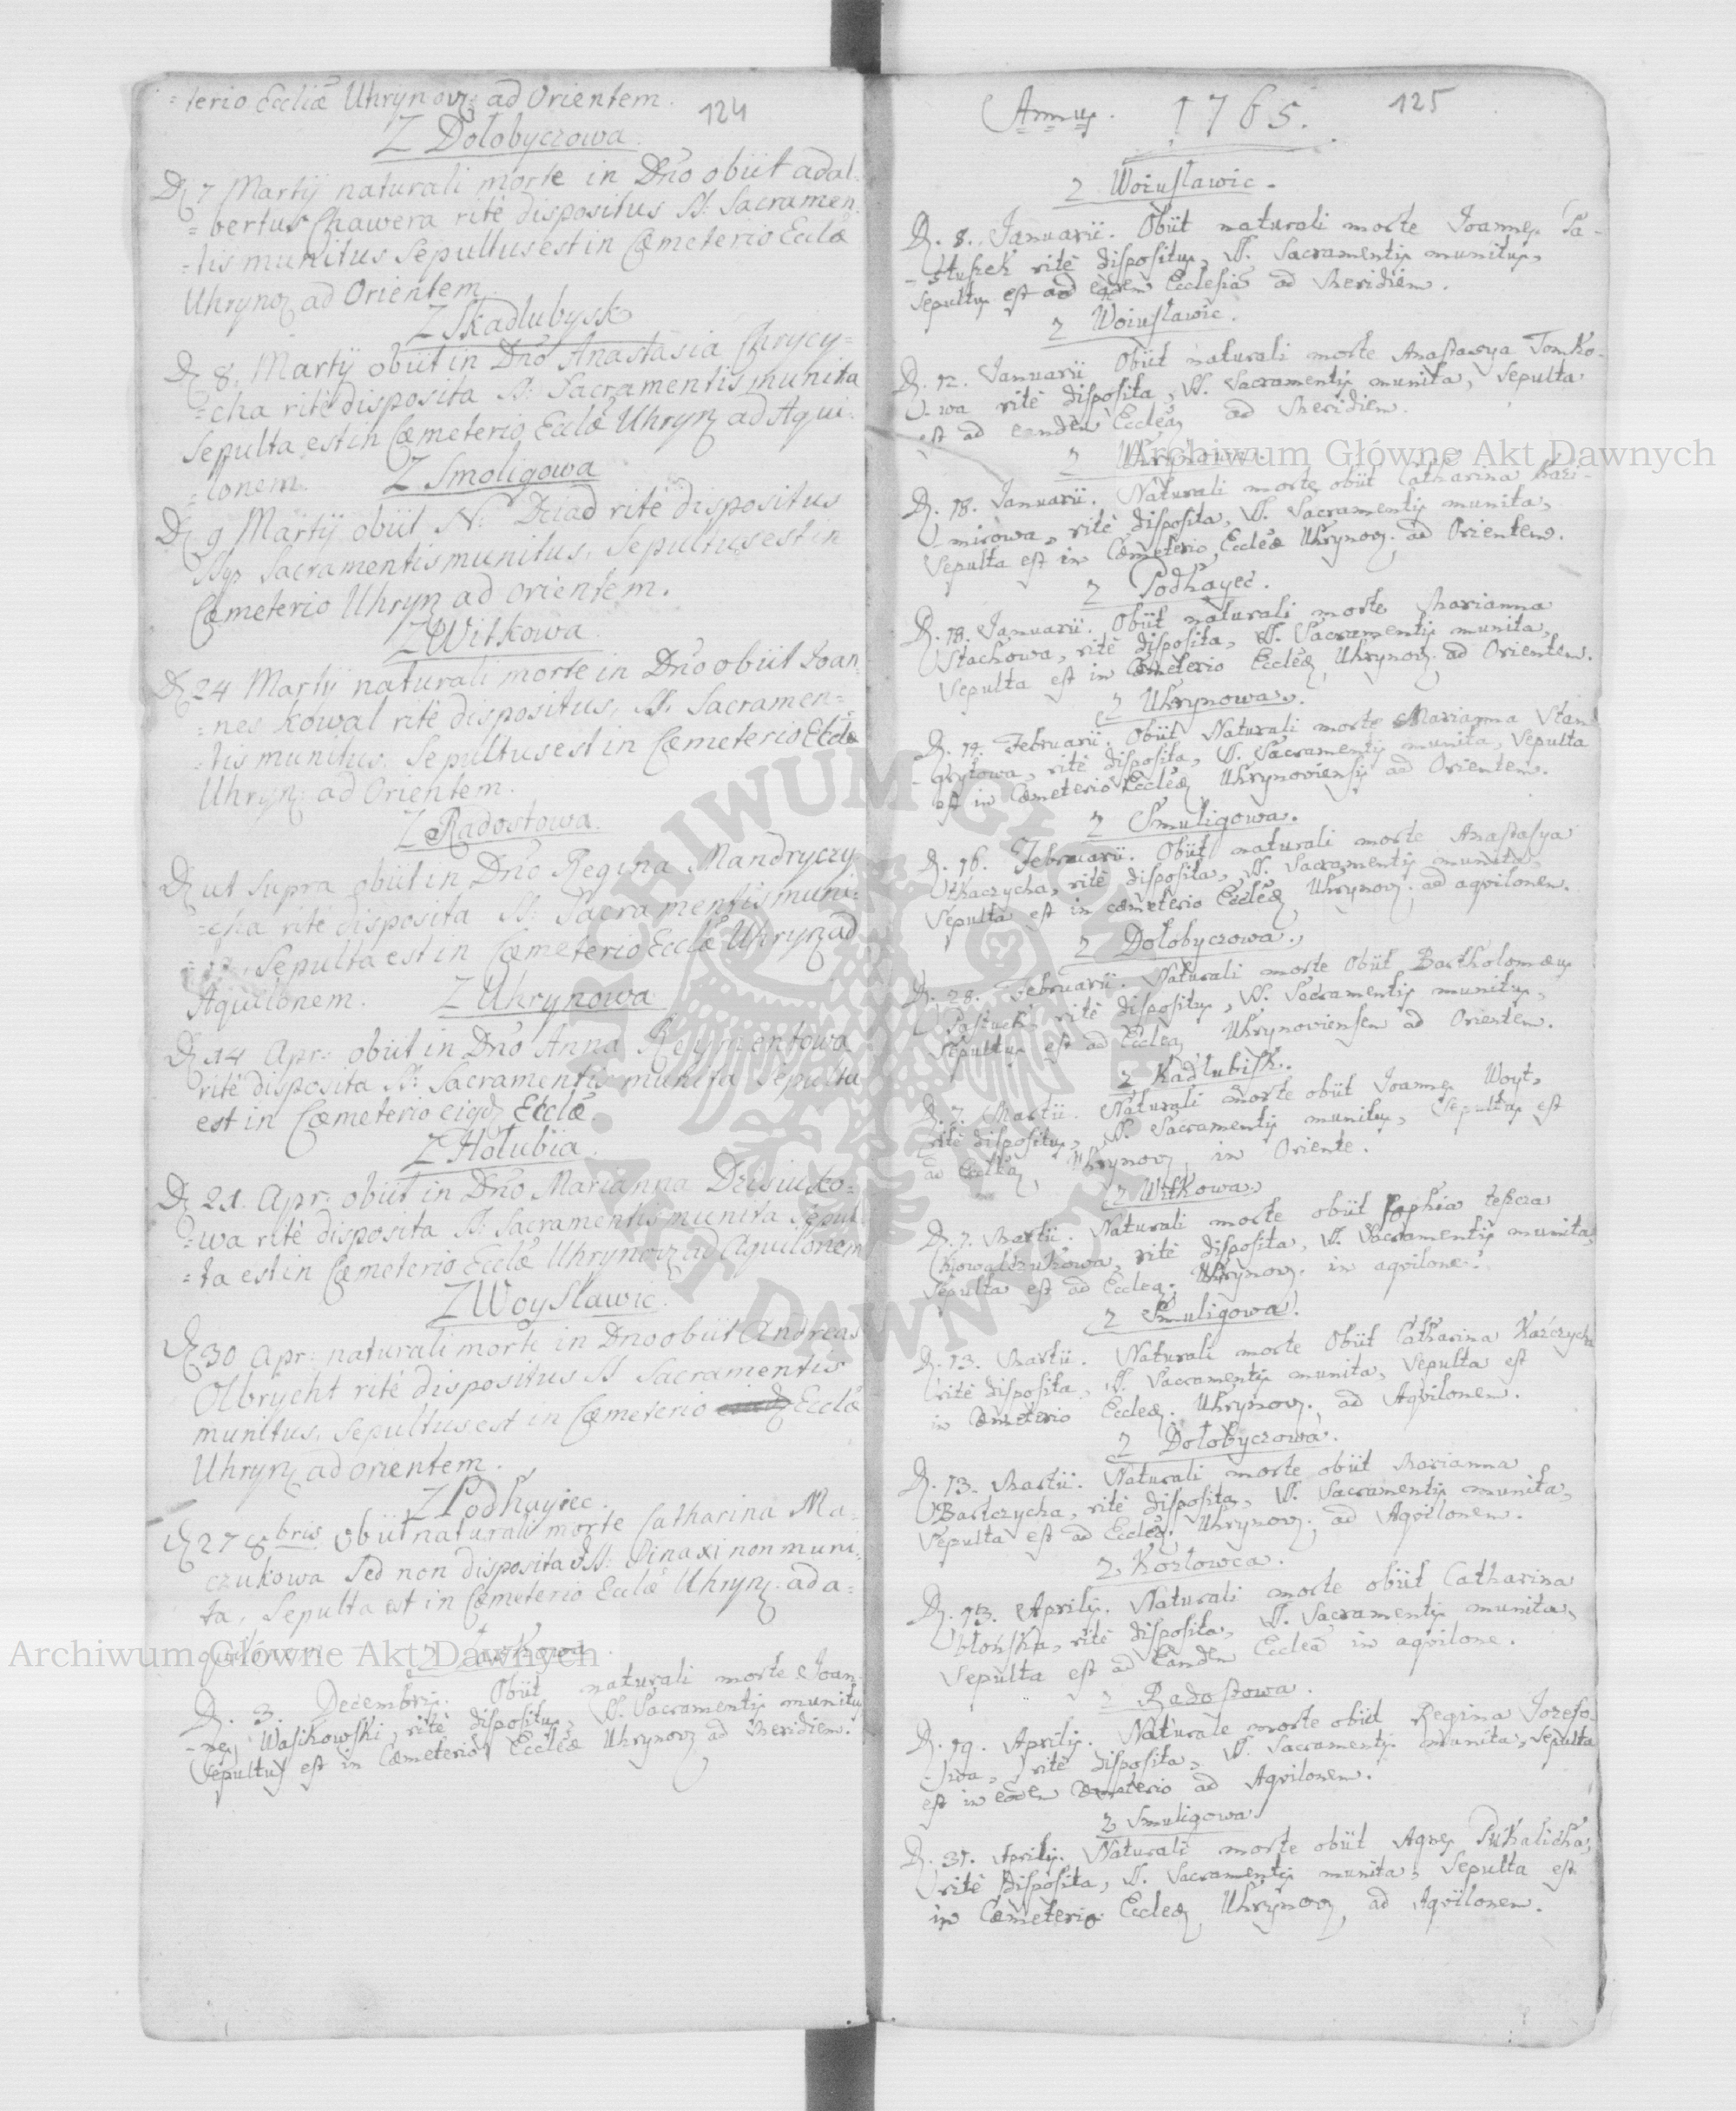 =terio Eccliæ Uhrynov: ad Orientem.
124
Z Dołobyczowa
D. 7 Martij naturali morte in Dño obiit adal-
=bertus Chawera ritè dispositus SS: Sacramen=
=tis munitus Sepultus est in Cœmeterio Ecclæ
Uhrynov ad Orientem.
Z Kadlubysk
D. 8. Martij obiit in Dño Anastasia Hrycy=
=cha ritè disposita SS: Sacramentis munita
Sepulta est in Cœmeterio Ecclæ Uhryn ad Aqui-
=lonem.
Z Smoligowa
D. 9 Martij obiit N: Dziad ritè dispositus
SSqz Sacramentis munitus, Sepultus est in
Cœmeterio Uhryn ad orientem.
Z Witkowa
D. 24 Martij naturali morte in Dño obiit Ioan=
=nes Kowal ritè dispositus, SS. Sacramen=
=tis munitus. Sepultus est in Cœmeterio Ecclæ
Uhryn: ad Orientem.
Z Radostowa
D. ut supra obiit in Dño Regina Mandryczy
=cha ritè disposita SS: Sacramentis muni=
Sepulta est in Cœmeterio Ecclæ Uhryn ad
Aquilonem.
Z Uhrynowa
D. 14 Apr: obiit in Dño Anna Reymentowa
ritè disposita SS: Sacramentis munita Sepulta
est in Cœmeterio eiqd Ecclæ
Z Hołubia
D. 21. Apr: obiit in Dño Marianna Dzisiuko=
=wa ritè disposita SS: Sacramentis munita Sepul=
=ta est in Cœmeterio Ecclæ Uhrynov ad Aquilonem
Z Woysławic
D. 30 Apr: naturali morte in Dno obiit Andreas
Olbrycht ritè dispositus SS Sacramentis
munitus, Sepultus est in Cœmeterio Ecclæ
Uhryn ad orientem.
Z Podhayiec.
D. 27 8bris obiit naturali morte Catharina Ma=
czukowa sed non disposita SS: Sinaxi non muni=
ta, Sepulta est in Cœmeterio Ecclæ Uhryn. ad a=
quilonem
D. 3. Decembris. Obiit naturali morte Ioan-
-nes Wasikowski, ritè dispositus, SS. Sacramentis munitus
Sepultus est in Cœmeterio Eccleæ Uhrynov ad Meridiem.
Annus. 1765.
125
Z Woiusławic.
D. 8. Januarii. Obiit naturali morte Joannes Pa-
-stuszek ritè dispositus, SS. Sacramentis munitus,
Sepultus est ad eqdem Ecclesiã ad Meridiem.
Z Woiusławic.
D. 12. Januarii Obiit naturali morte Anastasya Tomko-
-wa ritè disposita, SS. Sacramentis munita, Sepulta
est ad eandem Eccleã ad Meridiem.
Z Uhrynowa.
D. 18. Januarii. Naturali morte obiit Catharina Kazi-
-mirowa, ritè disposita, SS. Sacramentis munita,
Sepulta est in Cœmeterio Eccleæ Uhrynov. ad Orientem.
Z Podhayec.
D. 18. Januarii. Obiit naturali morte Marianna
Stachowa, ritè disposita, SS. Sacramentis munita,
Sepulta est in Cœmeterio Eccleæ, Uhrynov. ad Orientem.
Z Uhrynowa.
D. 14. Februarii. Obiit Naturali morte Marianna Stan-
-grytowa, ritè disposita, SS. Sacramentis munita, Sepulta
est in Cœmeterio Eccleæ Uhrynoviensis ad Orientem.
Z Smuligowa.
D. 16. Februarii. Obiit naturali morte Anastasya
Tkaczycha, ritè disposita, SS. Sacramentis munita,
Sepulta est in cœmeterio Eccleæ Uhrynov. ad aqvilonem.
Z Dołobyczowa.
D. 28. Februarii. Naturali morte Obiit Bartholomæus
Pastuch, ritè dispositus, SS. Sacramentis munitus,
Sepultus est ad Eccleã Uhrynoviensem ad Orientem.
Z Kadłubisk.
D. 7. Martii. Naturali morte obiit Joannes Woyt,
ritè dispositus, SS. Sacramentis munitus, Sepultus est
ad Eccleã, Uhrynov, in Oriente.
Z Witkowa.
D. 7. Martii. Naturali morte obiit Sophia teścza
Kowalczukowa, ritè disposita, SS. Sacramentis munita,
Sepulta est ad Eccleã. Uhrynov. in aqvilone.
Z Smuligowa.
D. 13. Martii. Naturali morte Obiit Catharina Kaźczycha
ritè disposita, SS. Sacramentis munita, Sepulta est
in Cœmeterio Eccleæ. Uhrynov. ad Aqvilonem.
Z Dołobyczowa.
D. 13. Martii. Naturali morte obiit Marianna
Bartczycha, ritè disposita, SS. Sacramentis munita,
Sepulta est ad Eccleã. Uhrynov. ad Aqvilonem.
Z Kozłowca.
D. 13. Aprilis. Naturali morte obiit Catharina
błońska, ritè disposita, SS. Sacramentis munita,
Sepulta est ad Eandem Eccleã in aqvilone.
Z Radostowa.
D. 19. Aprilis. Naturale morte obiit Regina Jozefo-
-wa, ritè disposita, SS. Sacramentis munita, Sepulta
est in eodem Cœmeterio ad Aqvilonem.
Z Smuligowa
D. 31. Aprilis. Naturali morte obiit Agnes Pukalicha,
ritè Disposita, SS. Sacramentis munita, Sepulta est
in Cœmeterio Eccleæ, Uhrynov, ad Aqvilonem.
Archiwum Główne Akt Dawnych
Archiwum Główne Akt Dawnych
ARCHIWUM GŁÓWNE AKT DAWNYCH